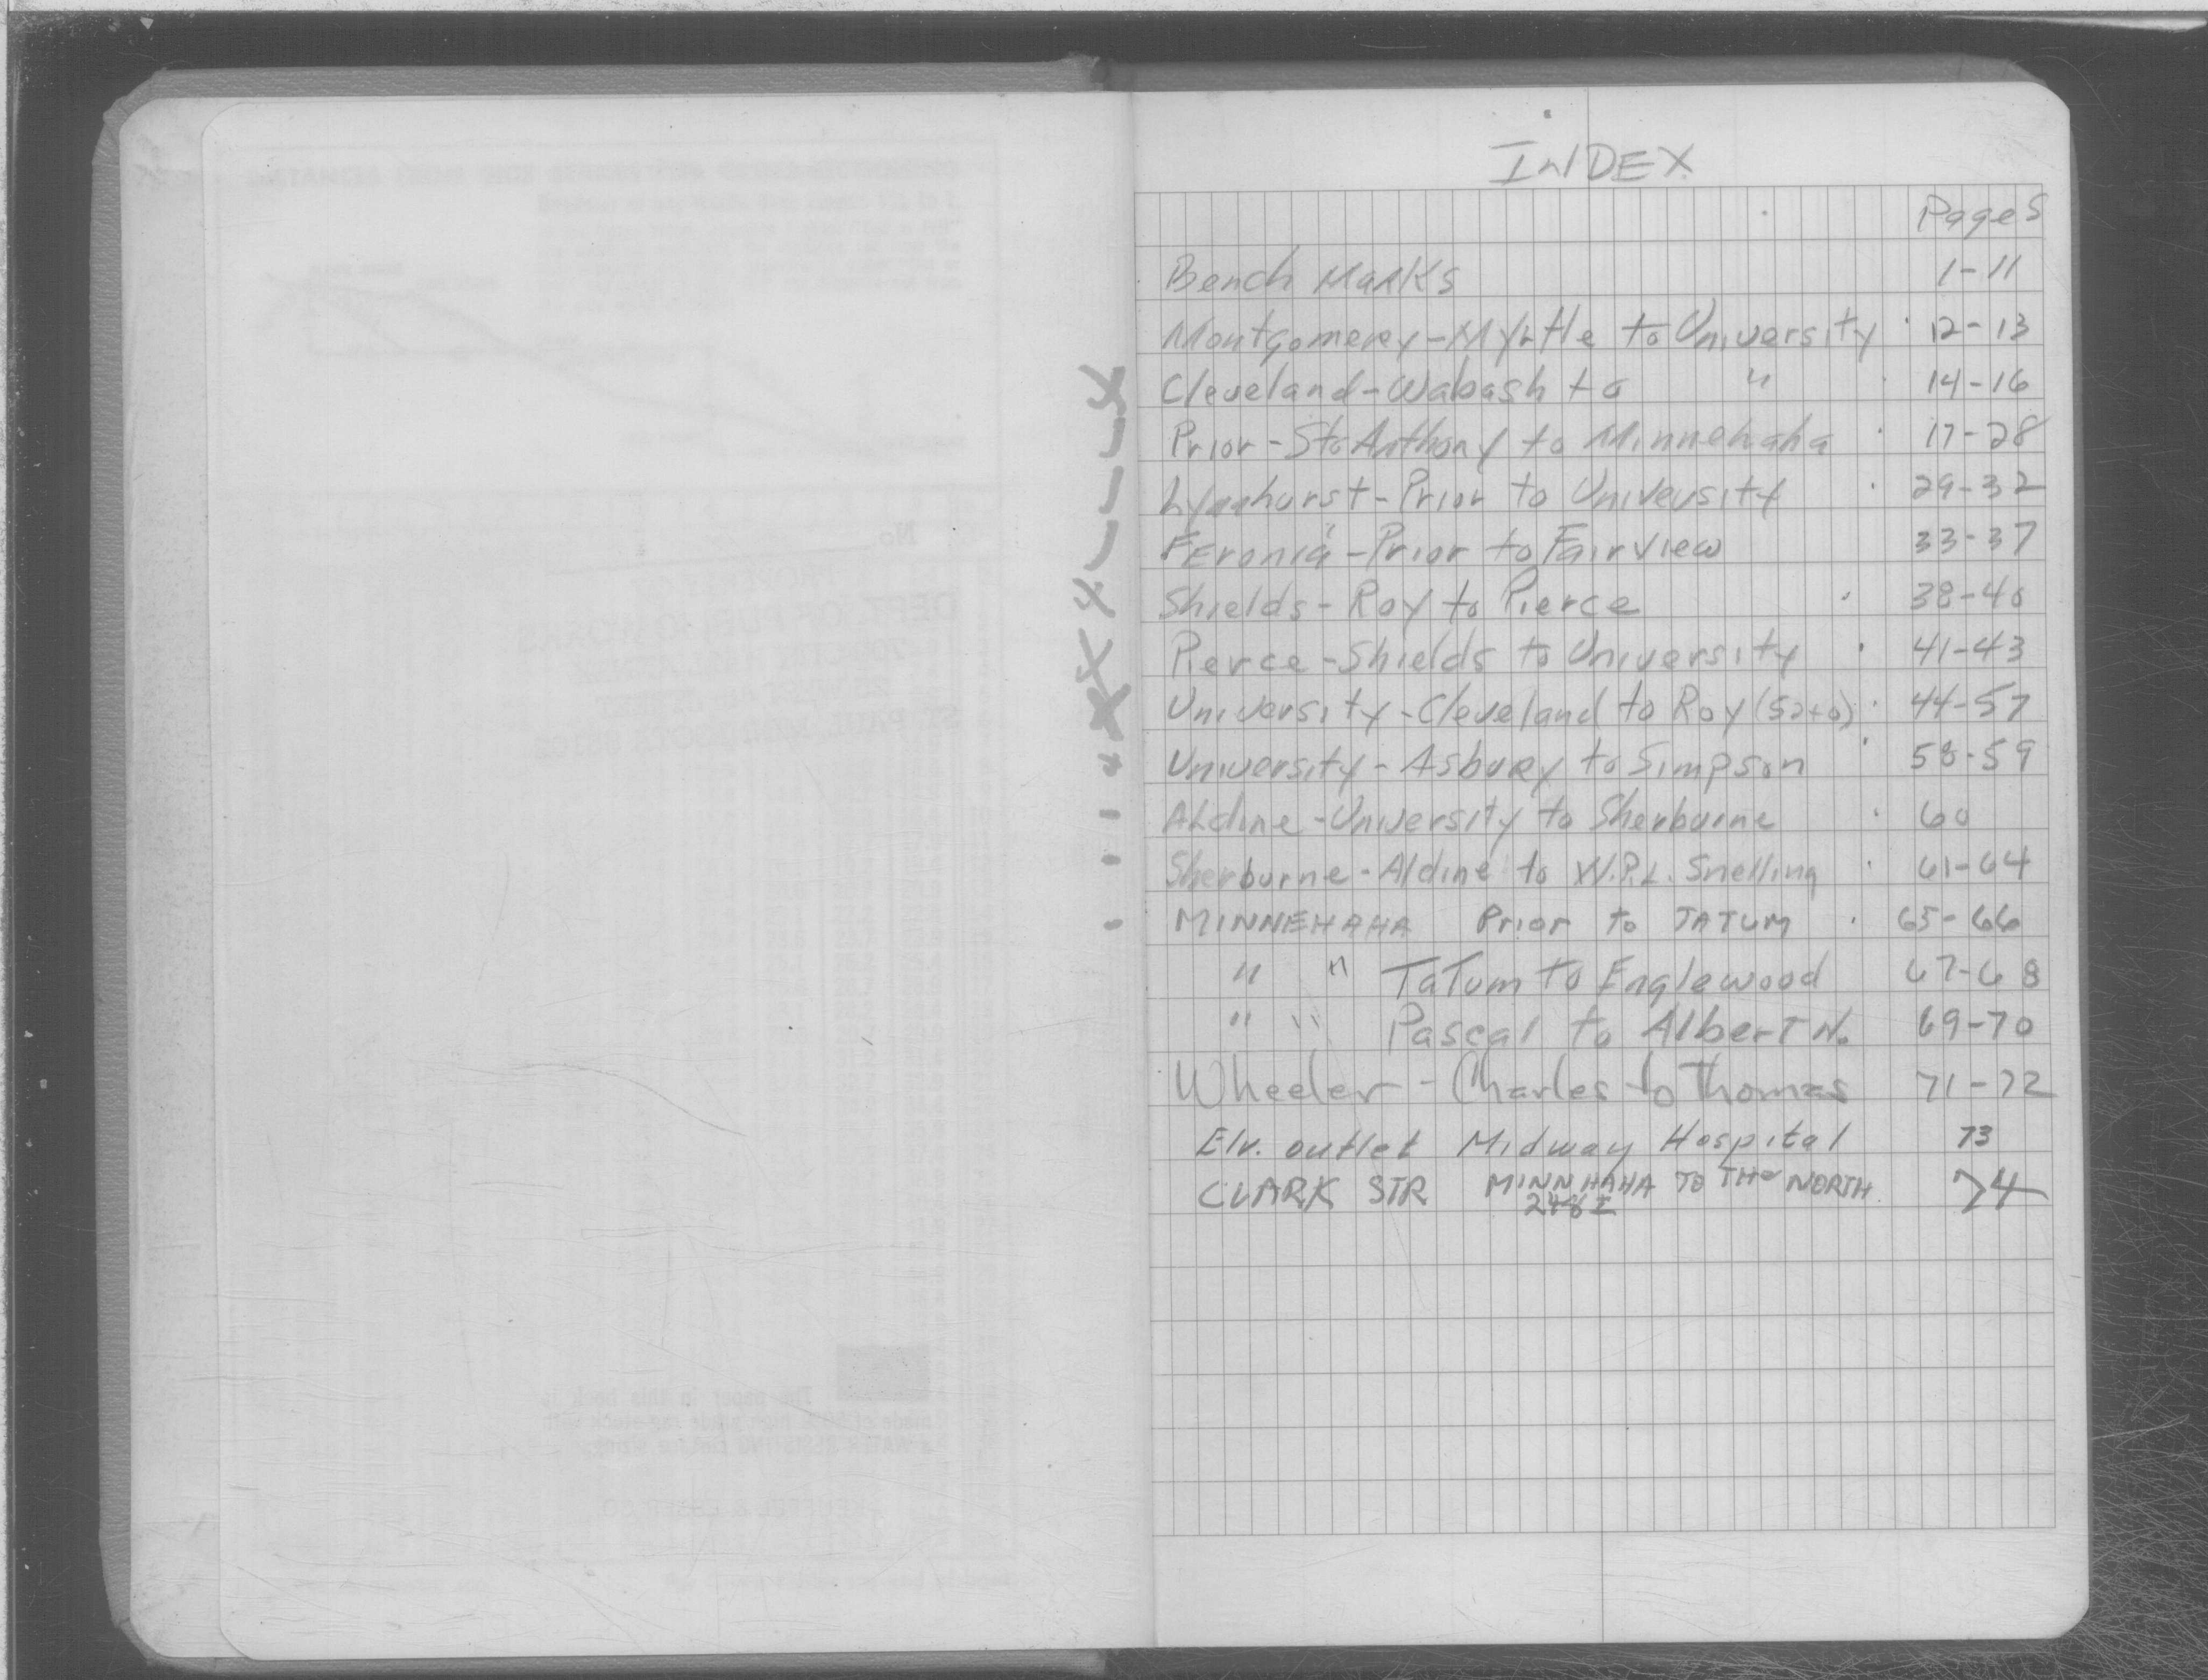 INDEX
Pages
Bench Marks 1-11
Montgomery-Myrtle to University 12-13
Cleveland-Wabash to " 14-16
Prior-St. Anthony to Minnehaha 17-28
Lynnhurst-Prior to University 29-32
Feronia-Prior to Fairview 33-37
Shields-Roy to Pierce 38-40
Pierce-Shields to University 41-43
University-Cleveland to Roy (52+0) 44-57
University-Asbury to Simpson 58-59
Aldine-University to Sherburne 60
Sherburne-Aldine to W.P.L. Snelling 61-64
MINNEHAHA Prior to TATUM 65-66
" " Tatum to Englewood 67-68
" " Pascal to Albert N. 69-70
Wheeler - Charles to Thomas 71-72
Elv. outlet Midway Hospital 73
CLARK STR MINNHAHA TO THE NORTH 74